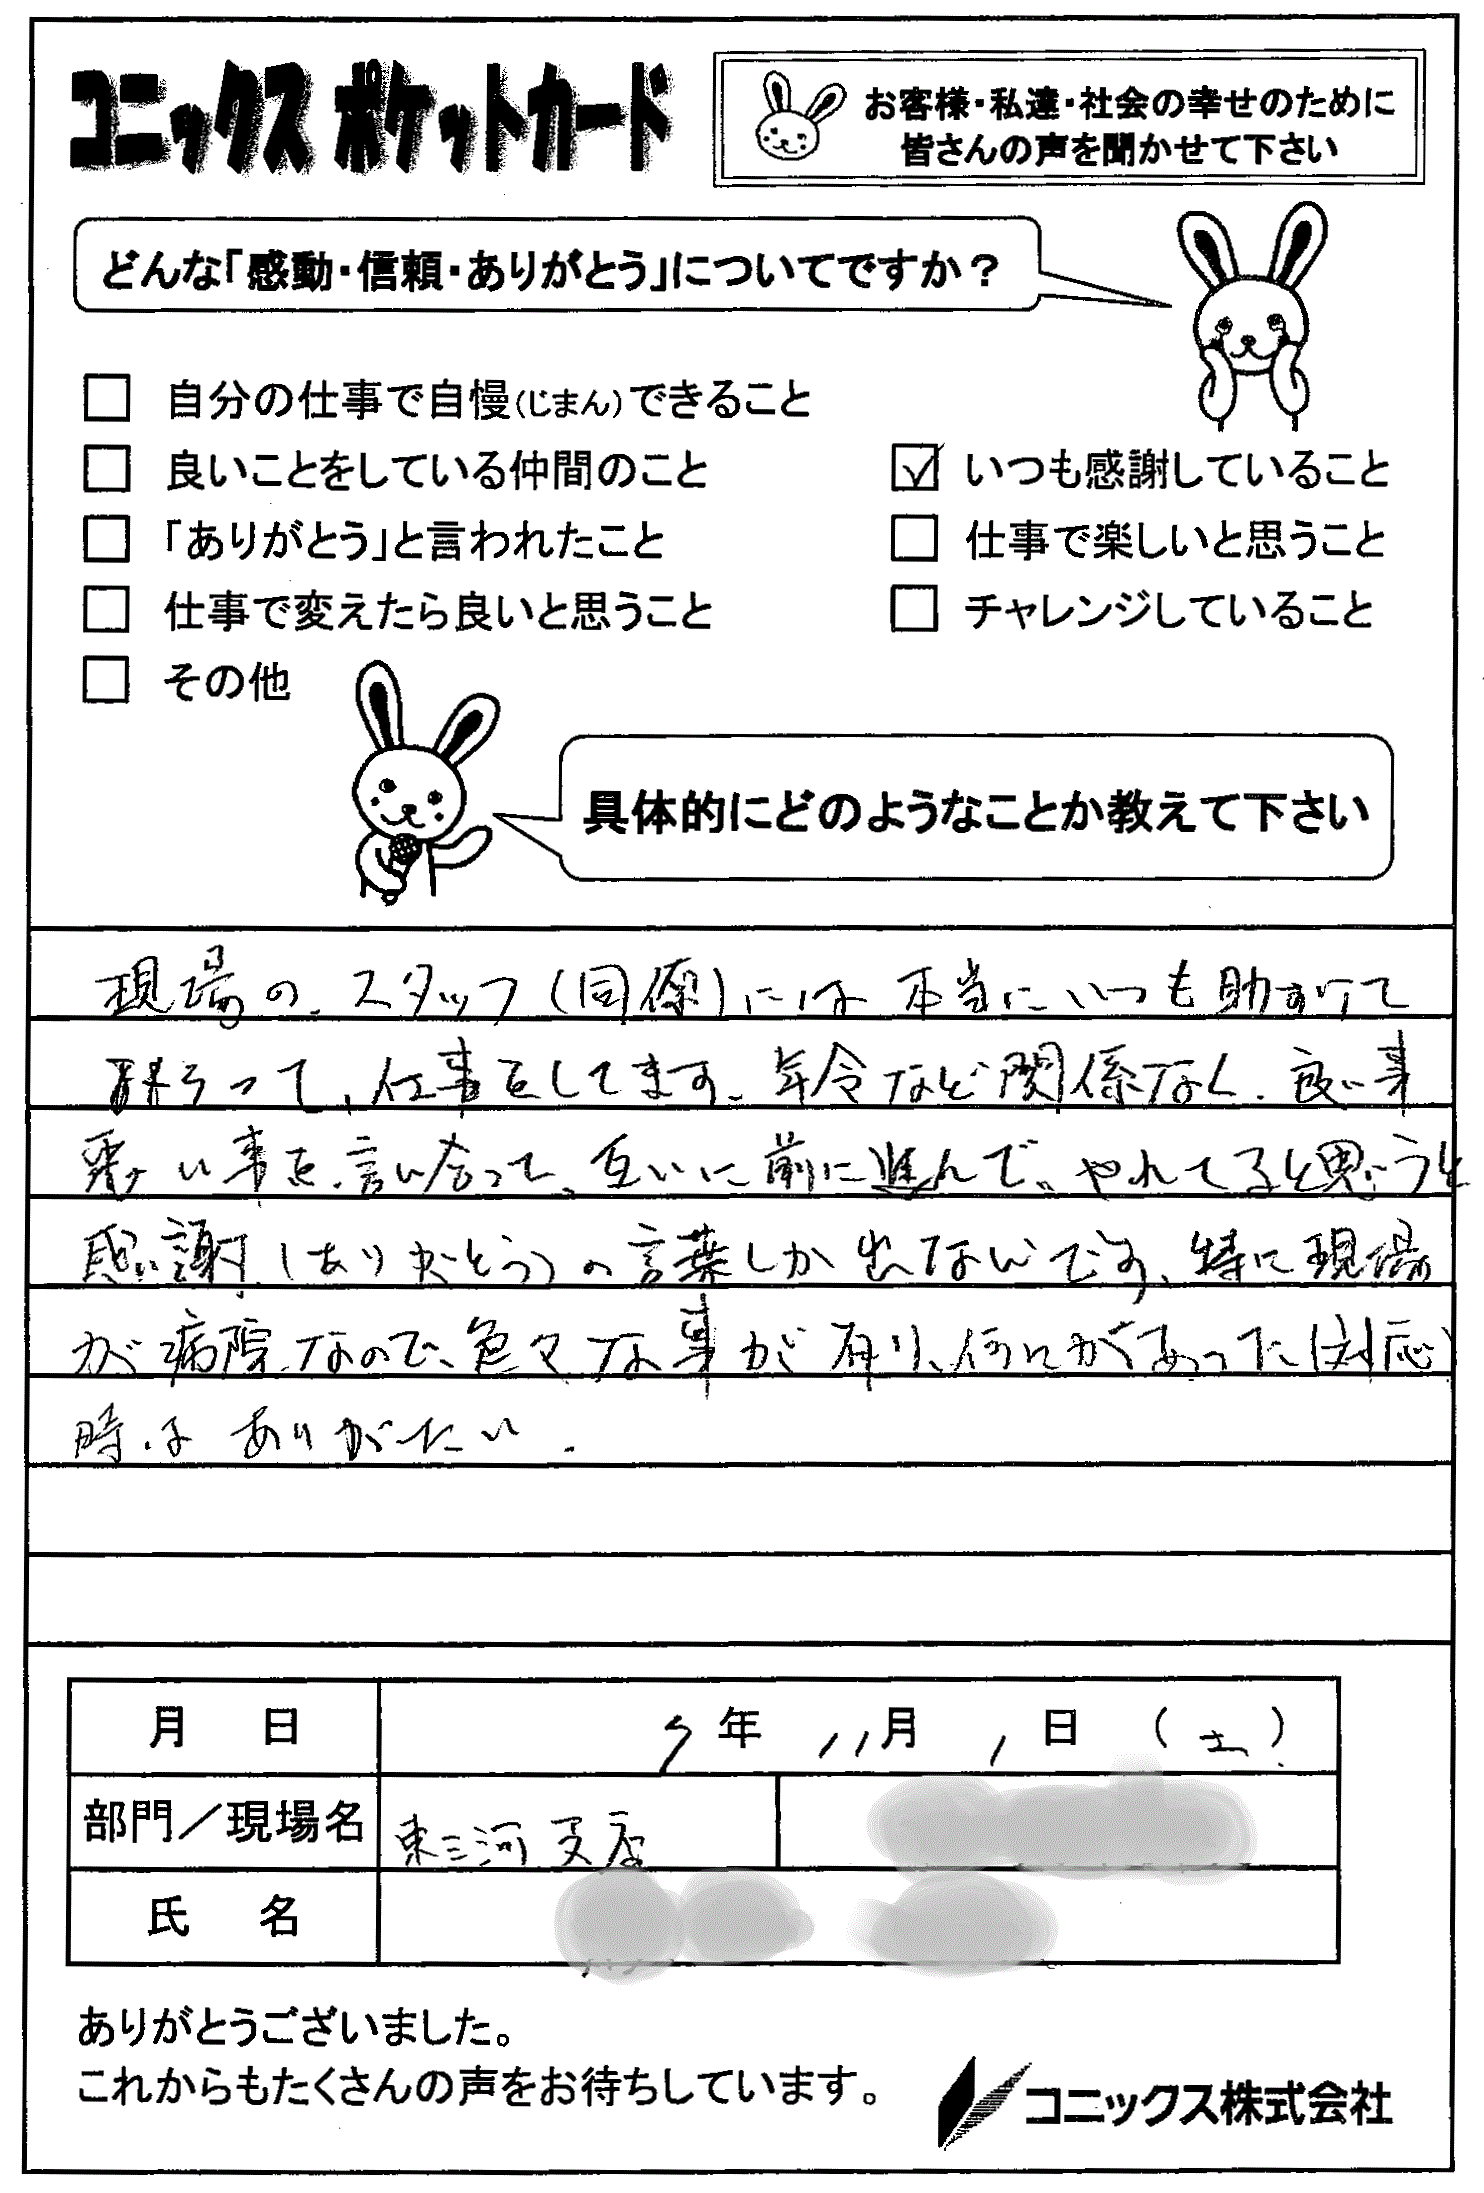 コニックス ポケットカード
お客様・私達・社会の幸せのために
皆さんの声を聞かせて下さい
どんな「感動・信頼・ありがとう」についてですか？
□ 自分の仕事で自慢(じまん)できること
□ 良いことをしている仲間のこと
☑ いつも感謝していること
□ 「ありがとう」と言われたこと
□ 仕事で楽しいと思うこと
□ 仕事で変えたら良いと思うこと
□ チャレンジしていること
□ その他
具体的にどのようなことか教えて下さい
現場の、スタッフ(同僚)には本当にいつも助けて
もらって、仕事をしてます。年令など関係なく、良い事
悪い事を言い合って、互いに前に進んで、やれてると思うと
感謝(ありがとう)の言葉しか出ないんです、特に現場
が病院なので、色々な事が有り、何にがあった(対応)
時は ありがたい.
月 日
7年 11月 1日 (土)
部門／現場名
東三河支店
氏 名
ありがとうございました。
これからもたくさんの声をお待ちしています。
コニックス株式会社